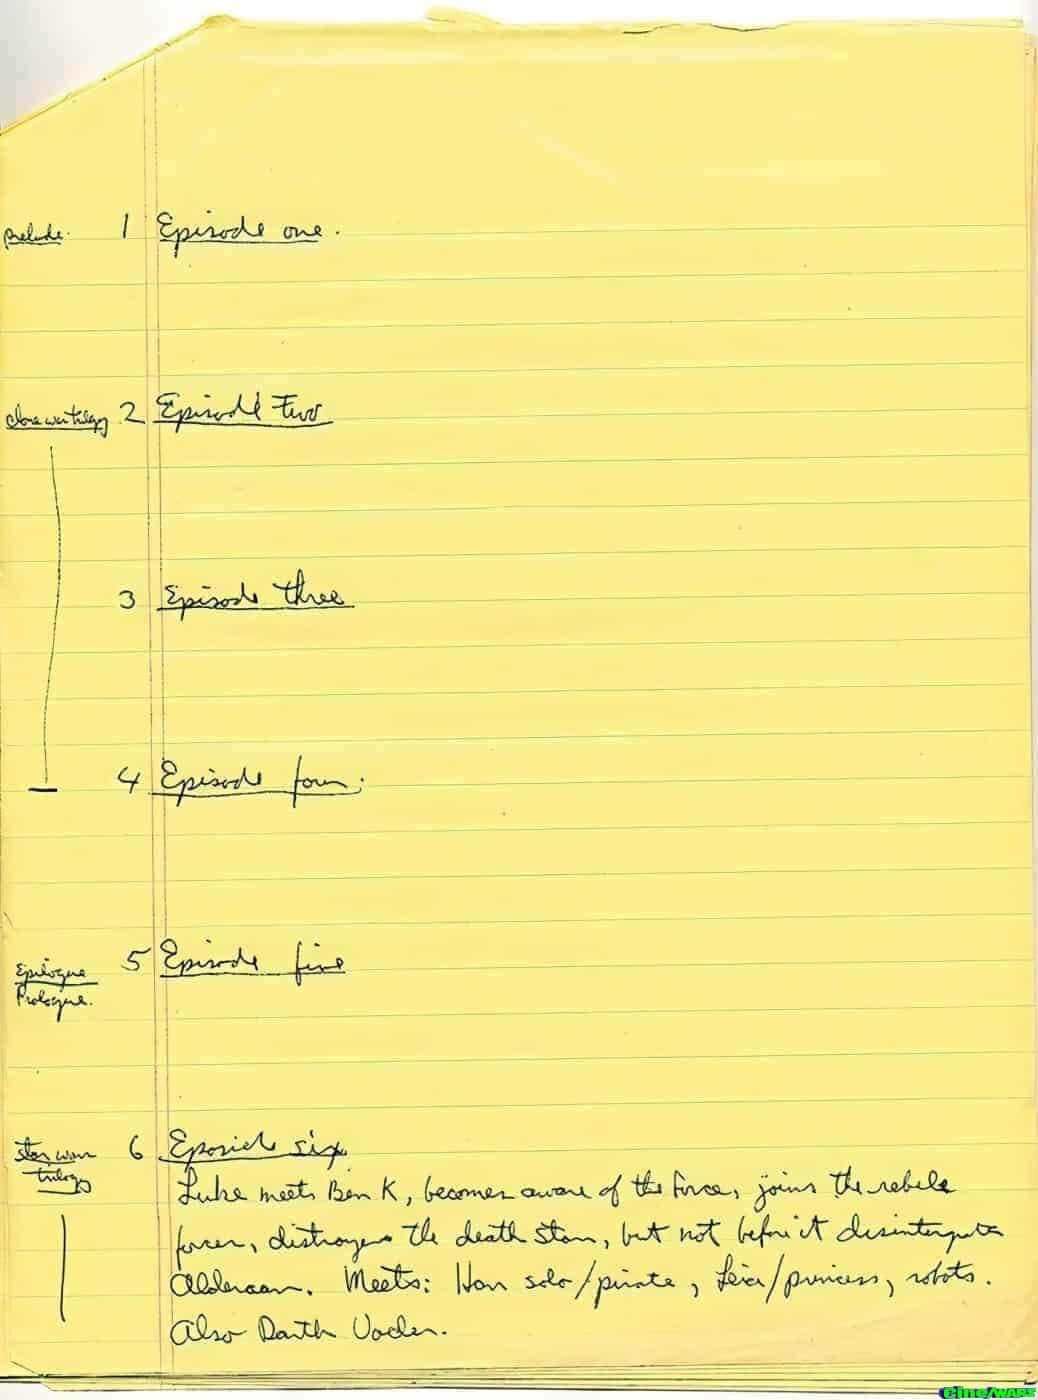 prelude. 1 Episode one.
clone war trilogy 2 Episode Two
3 Episode three
4 Episode four.
Epilogue 5 Episode five
Prologue.
star wars 6 Eposide six
trilogy
Luke meets Ben K, becomes aware of the Force, joins the rebele
forces, distroyes the death star, but not before it disintergrates
Alderaan. Meets: Han solo/pirate, Leia/princess, robots.
Also Darth Vader.
Cine/WARS